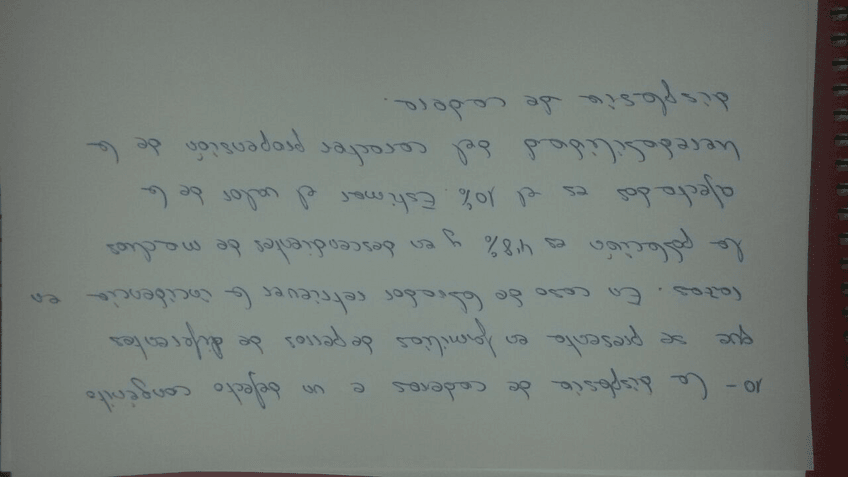 10- La displasia de caderas e un defecto congénito
que se presenta en familias de perros de diferentes
razas. En caso de labrador retriever la incidencia en
la población es 4'8% y en descendientes de madres
afectadas es el 10%. Estimar el valor de la
heredabilidad del caracter propensión de la
displasia de cadera.